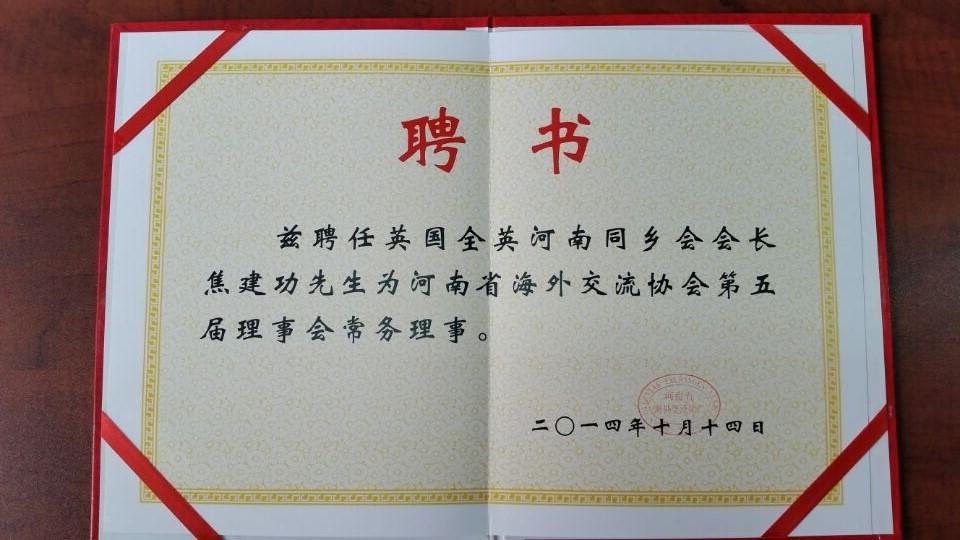 聘书
兹聘任英国全英河南同乡会会长
焦建功先生为河南省海外交流协会第五
届理事会常务理事。
河南省
海外交流协会
二〇一四年十月十四日